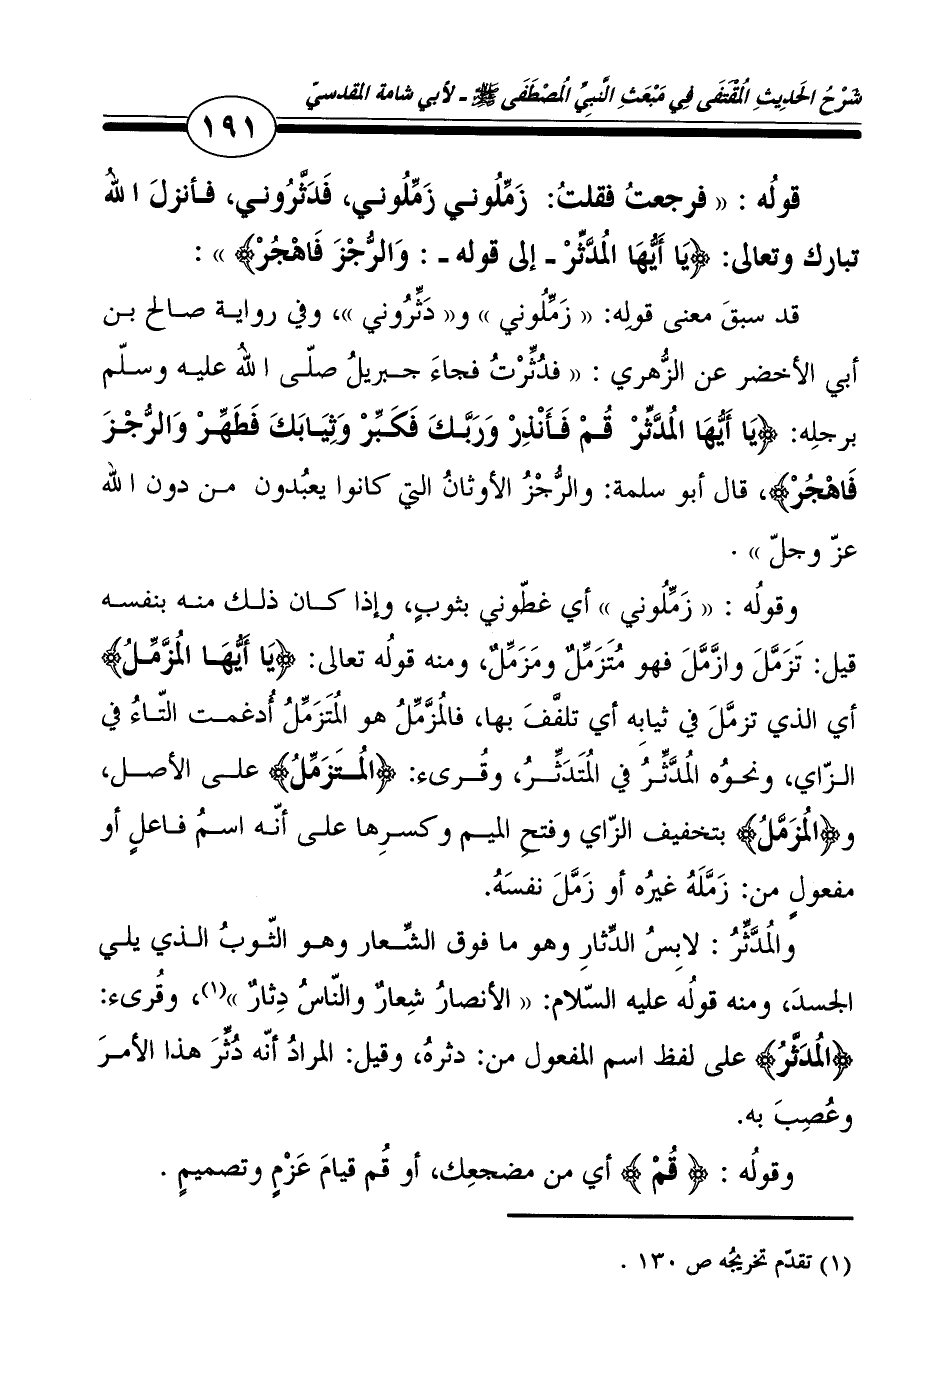 شَرْحُ الحَدِيثِ المُقْتَفَى فِي مَبْعَثِ النَّبِيِّ المُصْطَفَى ﷺ - لأبي شامة المقدسيّ
١٩١
قولُه : « فرجعتُ فقلتُ: زَمِّلُوني زَمِّلُوني، فَدَثَّرُوني، فـأنزلَ اللهُ
تبارك وتعالى: ﴿يَا أَيُّهَا المُدَّثِّرْ - إلى قوله - : وَالرُّجْزَ فَاهْجُرْ﴾ » :
قد سبقَ معنى قولِه: « زَمِّلُوني » و« دَثِّرُوني »، وفي رواية صالح بن
أبي الأخضر عن الزُّهري : « فدُثِّرْتُ فجاءَ جبريلُ صلّى اللهُ عليه وسلّم
برجلِه: ﴿يَا أَيُّهَا المُدَّثِّرْ قُمْ فَأَنْذِرْ وَرَبَّكَ فَكَبِّرْ وَثِيَابَكَ فَطَهِّرْ وَالرُّجْزَ
فَاهْجُرْ﴾، قال أبو سلمة: والرُّجْزُ الأوثانُ التي كانوا يعبُدون من دون الله
عزّ وجلّ » .
وقولُه : « زَمِّلُوني » أي غطّوني بثوبٍ، وإذا كان ذلك منه بنفسه
قيل: تَزَمَّلَ وازَّمَّلَ فهو مُتَزَمِّلٌ ومَزَمِّلٌ، ومنه قولُه تعالى: ﴿يَا أَيُّهَا المُزَّمِّلُ﴾
أي الذي تزمَّلَ في ثيابِه أي تلفَّفَ بها، فالمُزَّمِّلُ هو المُتَزَمِّلُ أُدغمت التّاءُ في
الزّاي، ونحوُه المُدَّثِّرُ في المُتَدَثِّرُ، وقُرىء: ﴿المُتَزَمِّلُ﴾ على الأصل،
و﴿المُزَمَّلُ﴾ بتخفيف الزّاي وفتحِ الميم وكسرِها على أنّه اسمُ فاعلٍ أو
مفعولٍ من: زَمَّلَهُ غيرُه أو زَمَّلَ نفسَهُ.
والمُدَّثِّرُ : لابِسُ الدِّثارِ وهو ما فوق الشِّعار وهو الثّوبُ الذي يلي
الجسدَ، ومنه قولُه عليه السّلام: « الأنصارُ شِعارٌ والنّاسُ دِثارٌ »(١)، وقُرىء:
﴿المُدَثَّرُ﴾ على لفظ اسم المفعول من: دثرهُ، وقيل: المرادُ أنّه دُثِّرَ هذا الأمرَ
وعُصِبَ به.
وقولُه : ﴿ قُمْ ﴾ أي من مضجعِك، أو قُم قيامَ عَزْمٍ وتصميمٍ .
(١) تقدّم تخريجُه ص ١٣٠ .